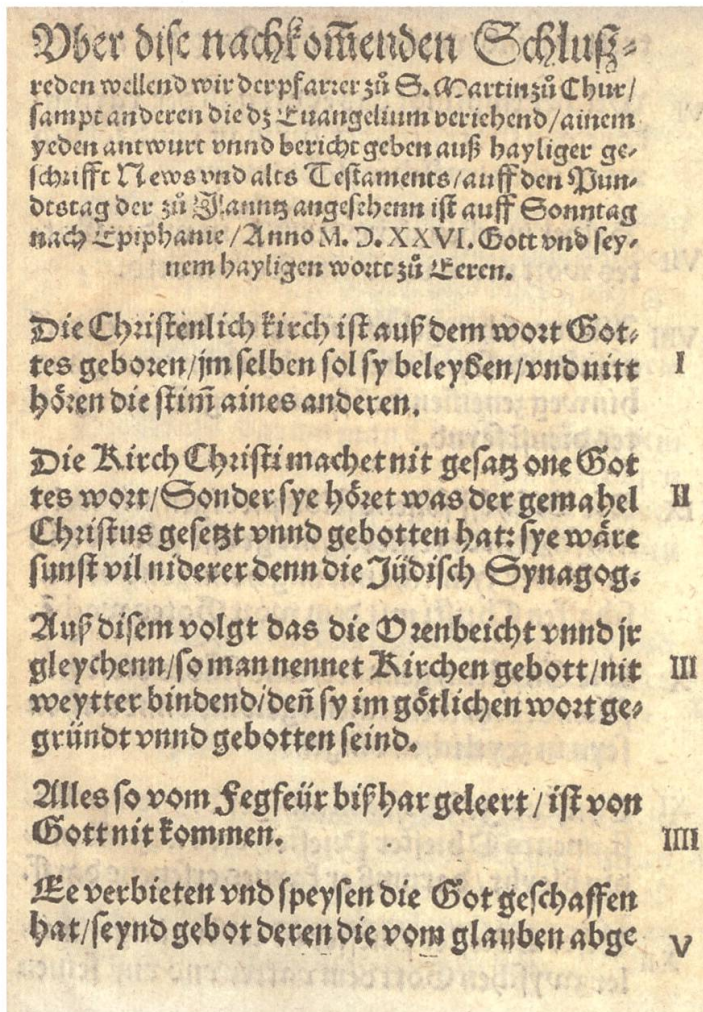 Vber dise nachkom̄enden Schluß⸗
reden wellend wir der pfarrer zů S. Martin zů Chur/
sampt anderen die dz Euangelium veriehend/ainem
yeden antwurt vnnd bericht geben auß hayliger ge⸗
schrifft News vnd alts Testaments/auff den Pun⸗
dtstag der zů Jlanntz angesehenn ist auff Sonntag
nach Epiphanie/Anno M. D. XXVI. Gott vnd sey⸗
nem hayligen wortt zů Eeren.
Die Christenlich kirch ist auß dem wort Got⸗
tes geboren/jm selben sol sy beleyben/vnd nitt I
hören die stim̄ aines anderen.
Die Kirch Christi machet nit gesatz one Got
tes wort/Sonder sye höret was der gemahel II
Christus gesetzt vnnd gebotten hat: sye wäre
sunst vil niderer denn die Jüdisch Synagog.
Auß disem volgt das die Orenbeicht vnnd jr
gleychenn/so man nennet Kirchen gebott/nit III
weytter bindend/den̄ sy im götlichen wort ge⸗
gründt vnnd gebotten seind.
Alles so vom Fegfeür bißhar geleert/ist von
Gott nit kommen. IIII
Ee verbieten vnd speysen die Got geschaffen
hat/seynd gebot deren die vom glauben abge V